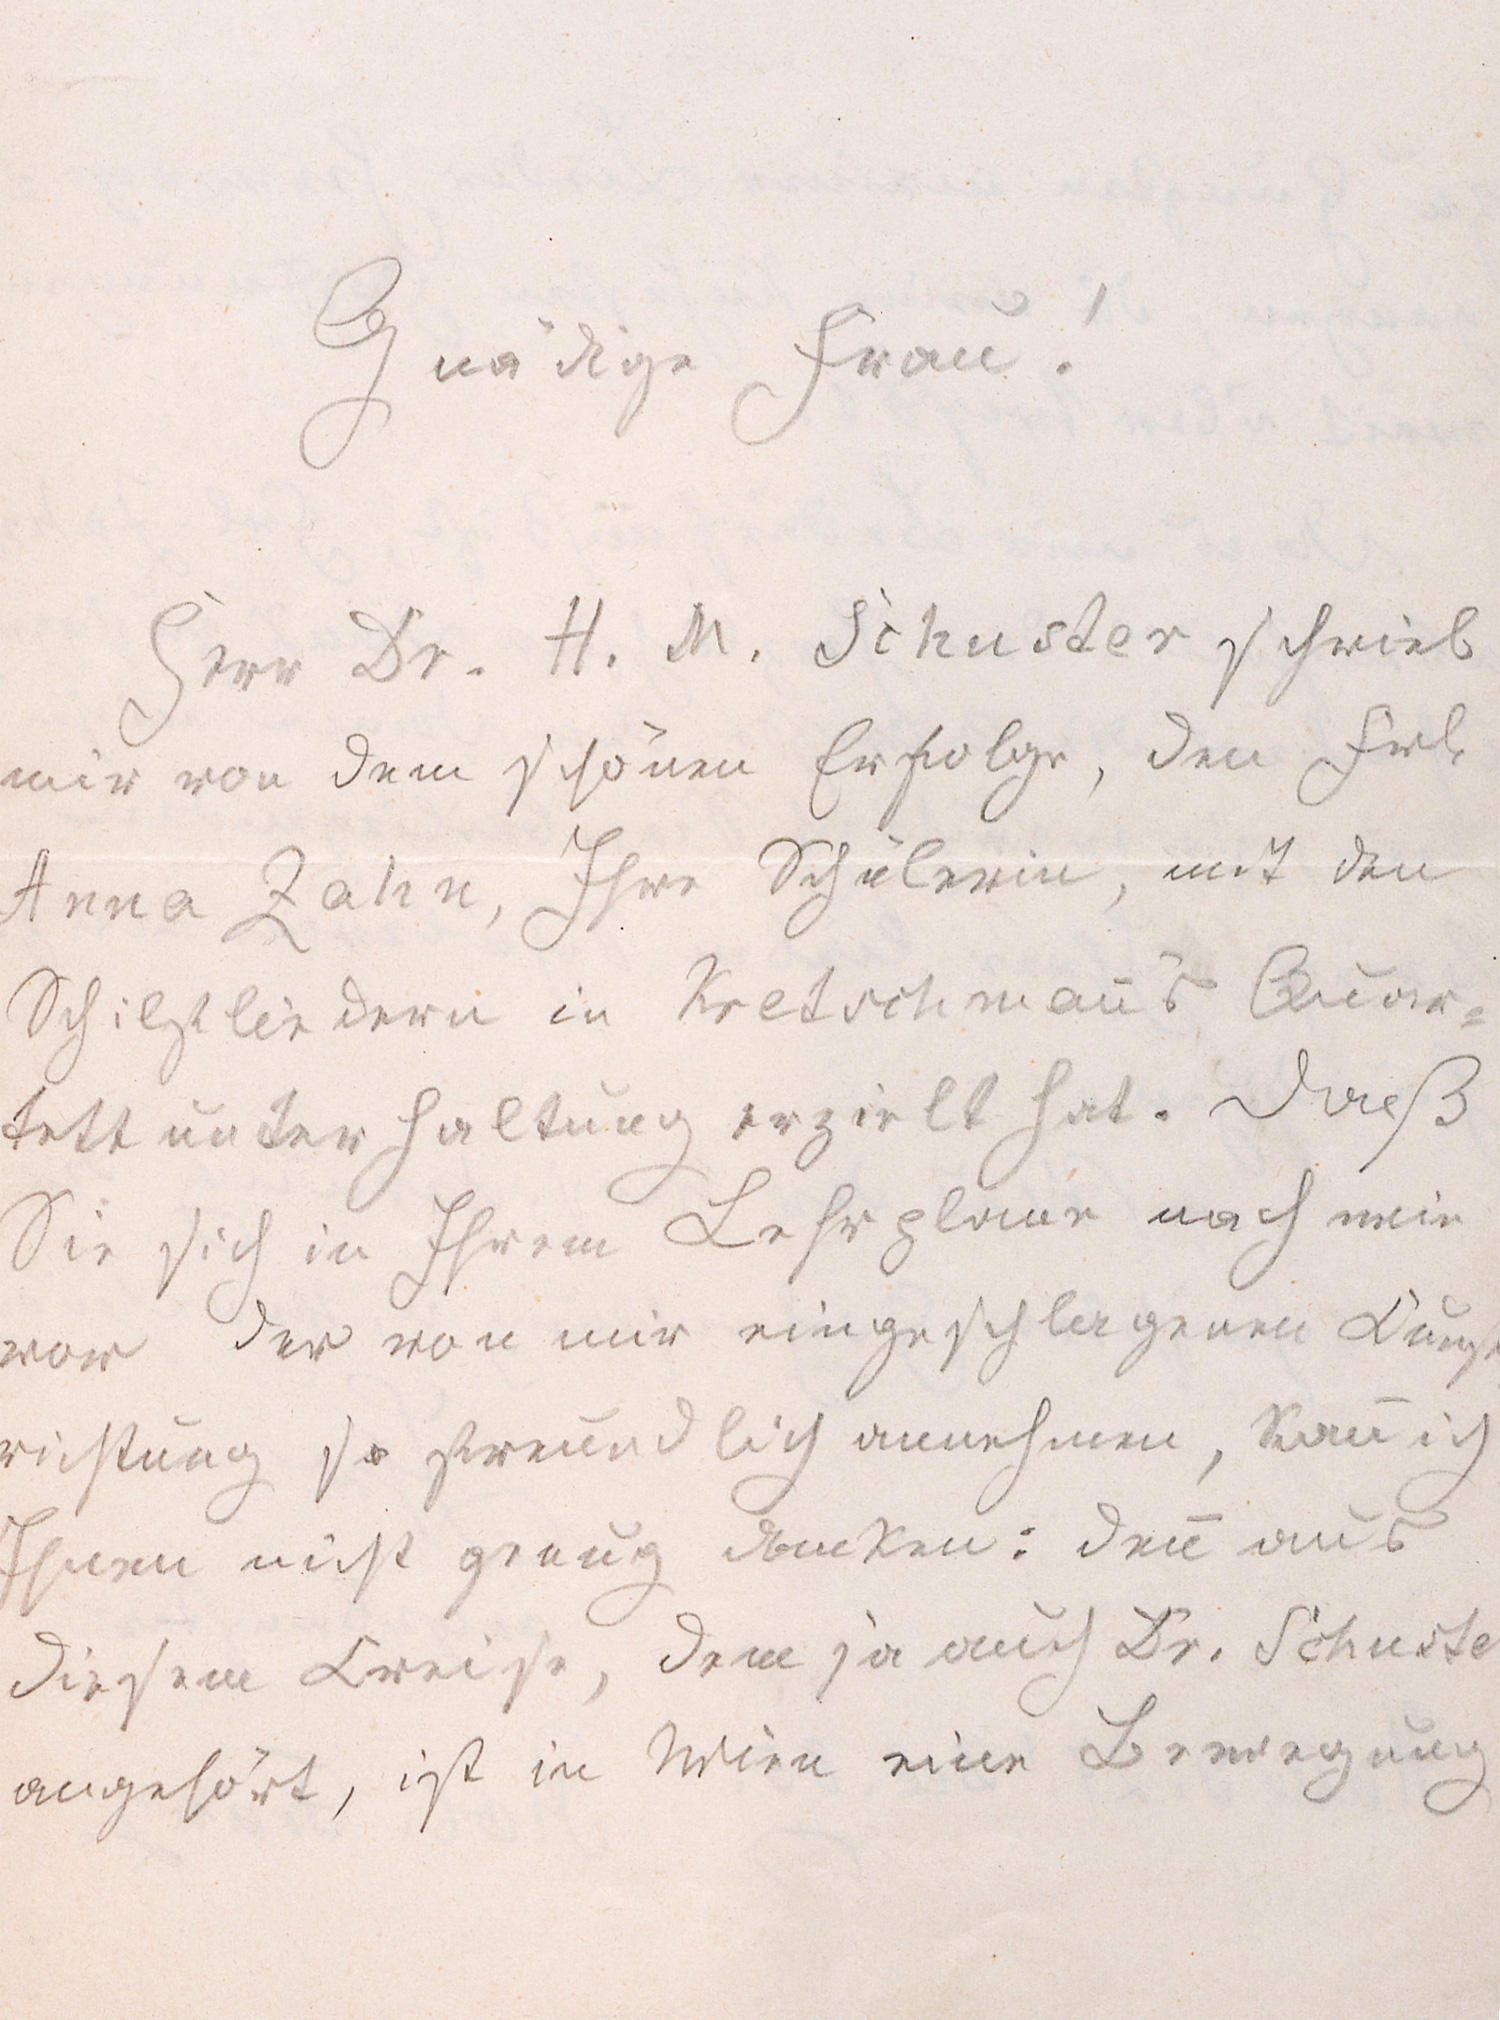 Gnädige Frau!
Herr Dr. H. M. Schuster schrieb
mir von dem schönen Erfolge, den Frl.
Anna Zahn, Ihre Schülerin, mit den
Schilfliedern in Kretschman̄s Quar=
tettunterhaltung erzielt hat. Daß
Sie sich in Ihrem Lehrplane nach wie
vor der von mir eingeschlagenen Kunst
richtung so freundlich annehmen, kan̄ ich
Ihnen nicht genug danken: den̄ aus
diesem Kreise, dem ja auch Dr. Schuste
angehört, ist in Wien eine Bewegung